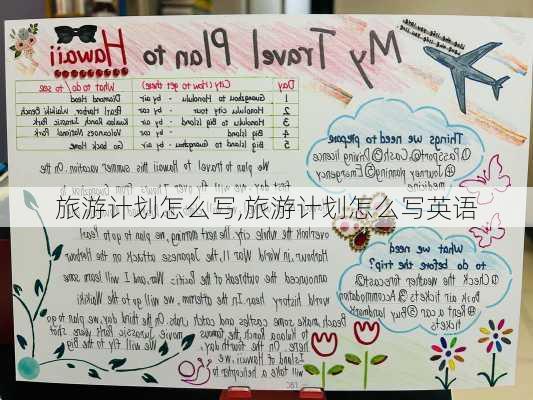 My Travel Plan to Hawaii
Day City (How to get there) What to do to see
1 Guangzhou to Honolulu - by air Diamond Head
2 Honolulu city tour - by car Pearl Harbor, Waikiki Beach
3 Honolulu to Big Island - by air Kualoa Jurassic Park
4 Big Island - by car Volcanoes National Park
5 Big Island - by air Go back home
Things we need to prepare
①Passport②Cash③Driving licence
④Journey planning⑤Emergency
medicine
We plan to travel to Hawaii this summer vacation. On the
first day
旅游计划怎么写,旅游计划怎么写英语
overlook the whole city. The next morning, we plan to go to Pearl
Harbour. In World War II, the Japanese attack on the Harbor
announced the outbreak of the Pacific War, and I will learn some
world history here. In the afternoon, we will go to the Waikiki
Beach, make some castles and catch crabs. On the third day, we plan to go
to Kualoa Ranch, the famous movie Jurassic Park were shot
there. On the fourth day, We will fly to the Big
Island of Hawaii, we
will take a helicopter to
What we need
to do before the trip?
①Check the weather forecast
②Book air tickets③Accommodation
④Rent a car⑤Buy
tickets